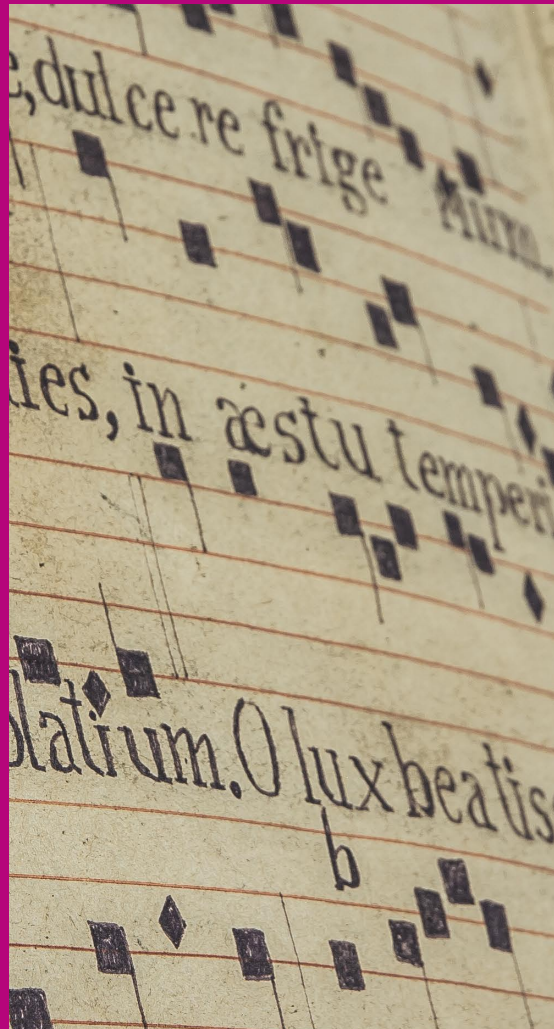 e, dulce re frige
ies, in æstu temperi
olatium. O lux beatis
b